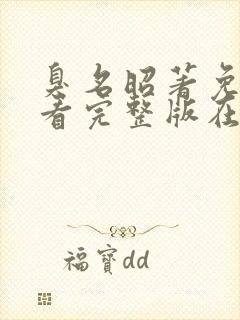 臭名昭著免
看完整版在
福寶dd